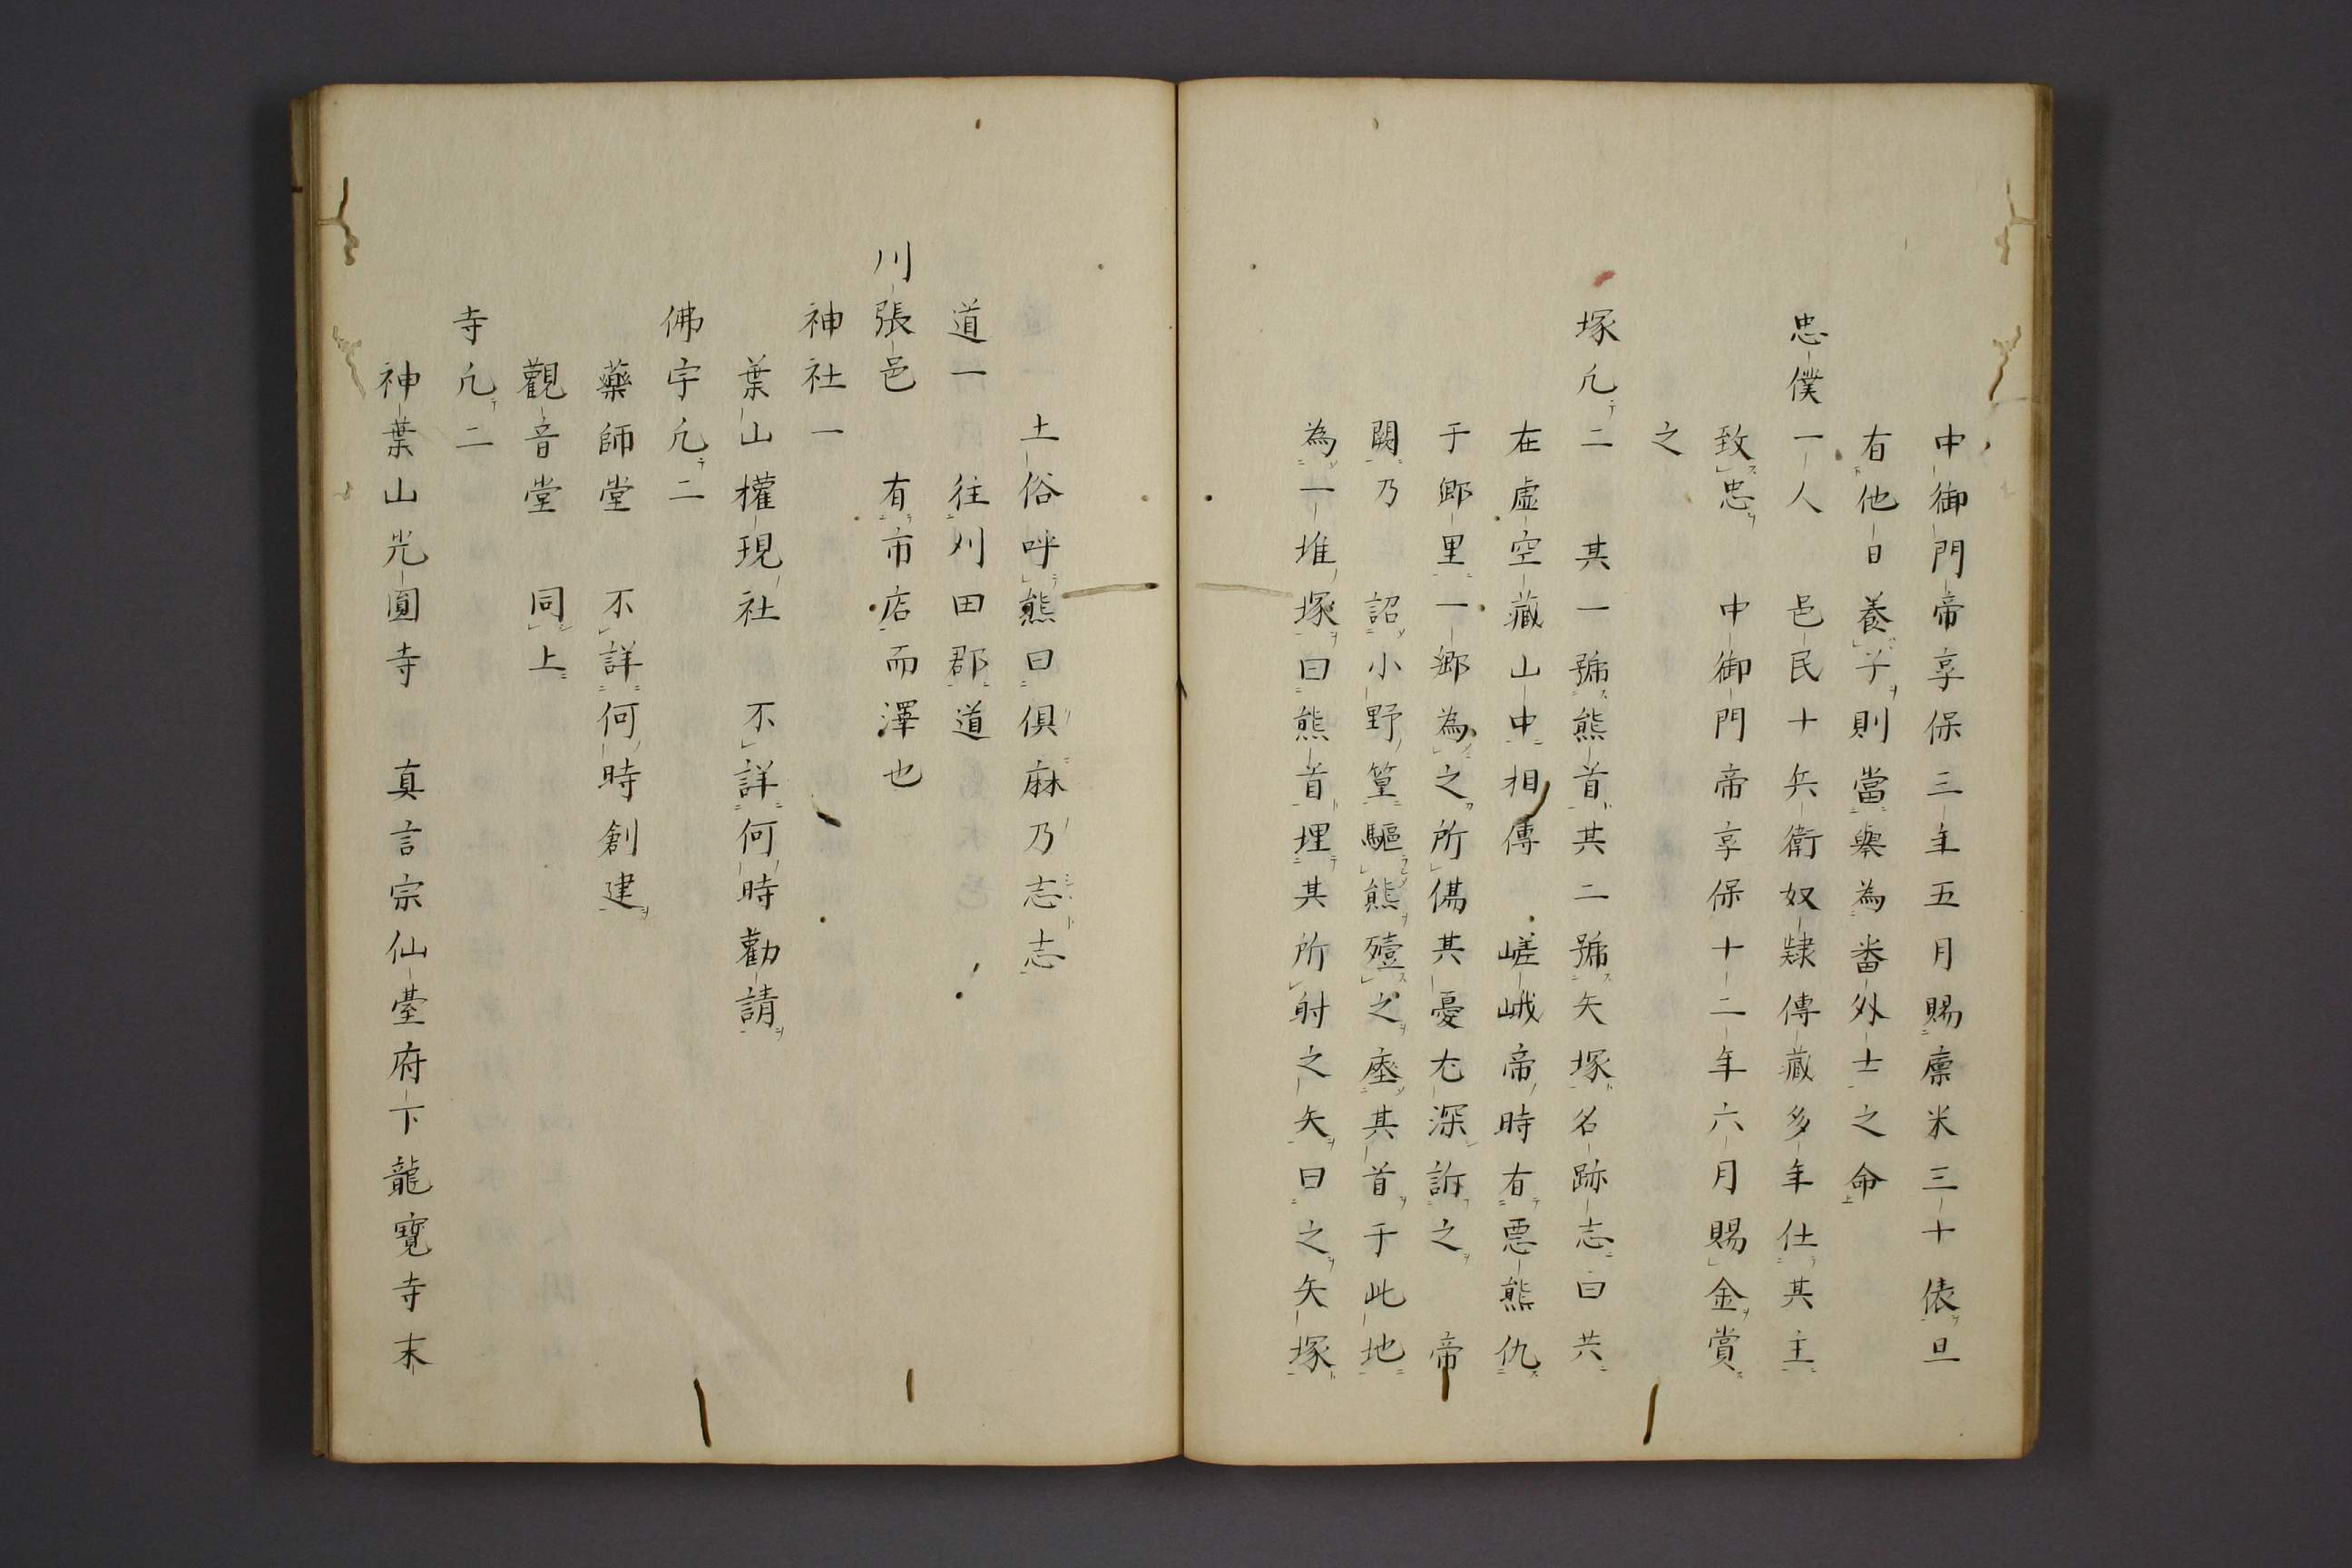 中御門帝享保三年五月賜廩米三十俵且
有他日養子則當擧為番外士之命
忠僕一人　邑民十兵衛奴隷傳藏多年仕其主
致忠　中御門帝享保十二年六月賜金賞
之
塚凢二　其一號熊首其二號矢塚名跡志曰共
在虛空藏山中相傳　嵯峨帝時有惡熊仇
于鄉里一鄉為之所傷其憂尤深訴之　帝
闕乃　詔小野篁驅熊殪之座其首于此地
為一堆塚曰熊首埋其所射之矢曰之矢塚
土俗呼熊曰倶麻乃志志
道一　往刈田郡道
川張邑　有市店而澤也
神社一
葉山權現社　不詳何時勸請
佛宇凢二
藥師堂　不詳何時創建
觀音堂　同上
寺凢二
神葉山光圓寺　真言宗仙臺府下龍寶寺末